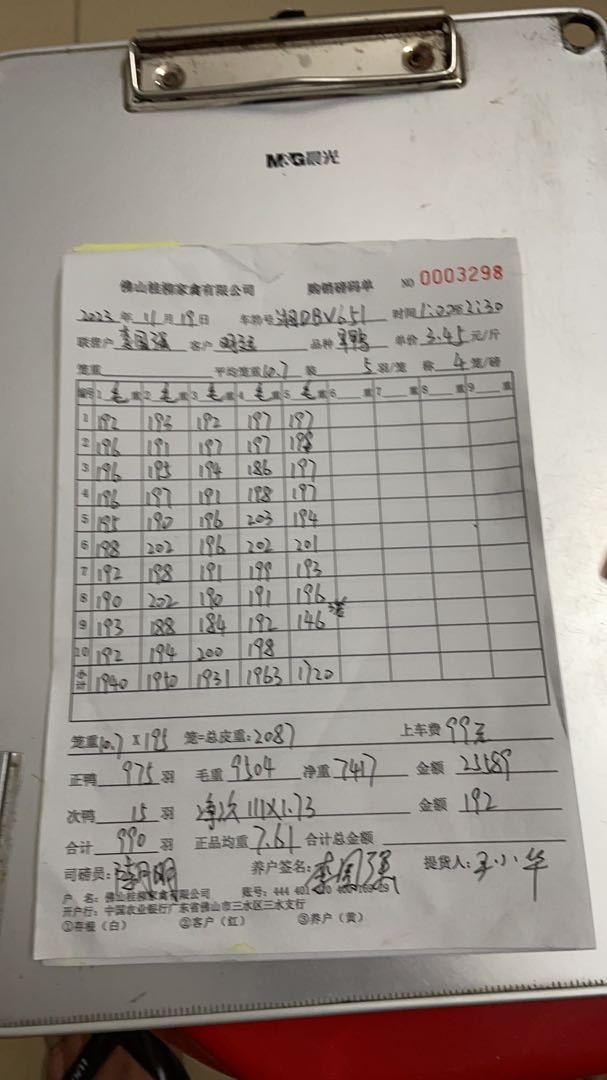 M&G晨光
佛山桂柳家禽有限公司 购销磅码单 NO 0003298
2023 年 11 月 19 日 车牌号 湘DBV651 时间 1:00至2:30
联营户 李国强 客户 品种 单价 3.45 元/斤
笼重 平均笼重 10.7 装 5 羽/笼 称 4 笼/磅
编号 1 毛 重 2 毛 重 3 毛 重 4 毛 重 5 毛 重 6 重 7 重 8 重 9 重
1 192 193 192 197 197
2 196 191 197 197 198
3 196 195 194 186 197
4 196 197 191 198 197
5 195 190 196 203 194
6 198 202 196 202 201
7 192 198 191 199 193
8 190 202 190 191 196
9 193 188 184 192 146 3笼
10 192 194 200 198
合计 1940 1950 1931 1963 1720
笼重 10.7 X 195 笼=总皮重: 2087 上车费 99元
正鸭 975 羽 毛重 9504 净重 7417 金额 25589
次鸭 15 羽 净次 111X1.73 金额 192
合计 990 羽 正品均重 7.61 合计总金额
司磅员: 养户签名: 李国强 提货人: 王小华
户 名: 佛山桂柳家禽有限公司 账号: 444 401
开户行: 中国农业银行广东省佛山市三水区三水支行
①存根(白) ②客户(红) ③养户(黄)